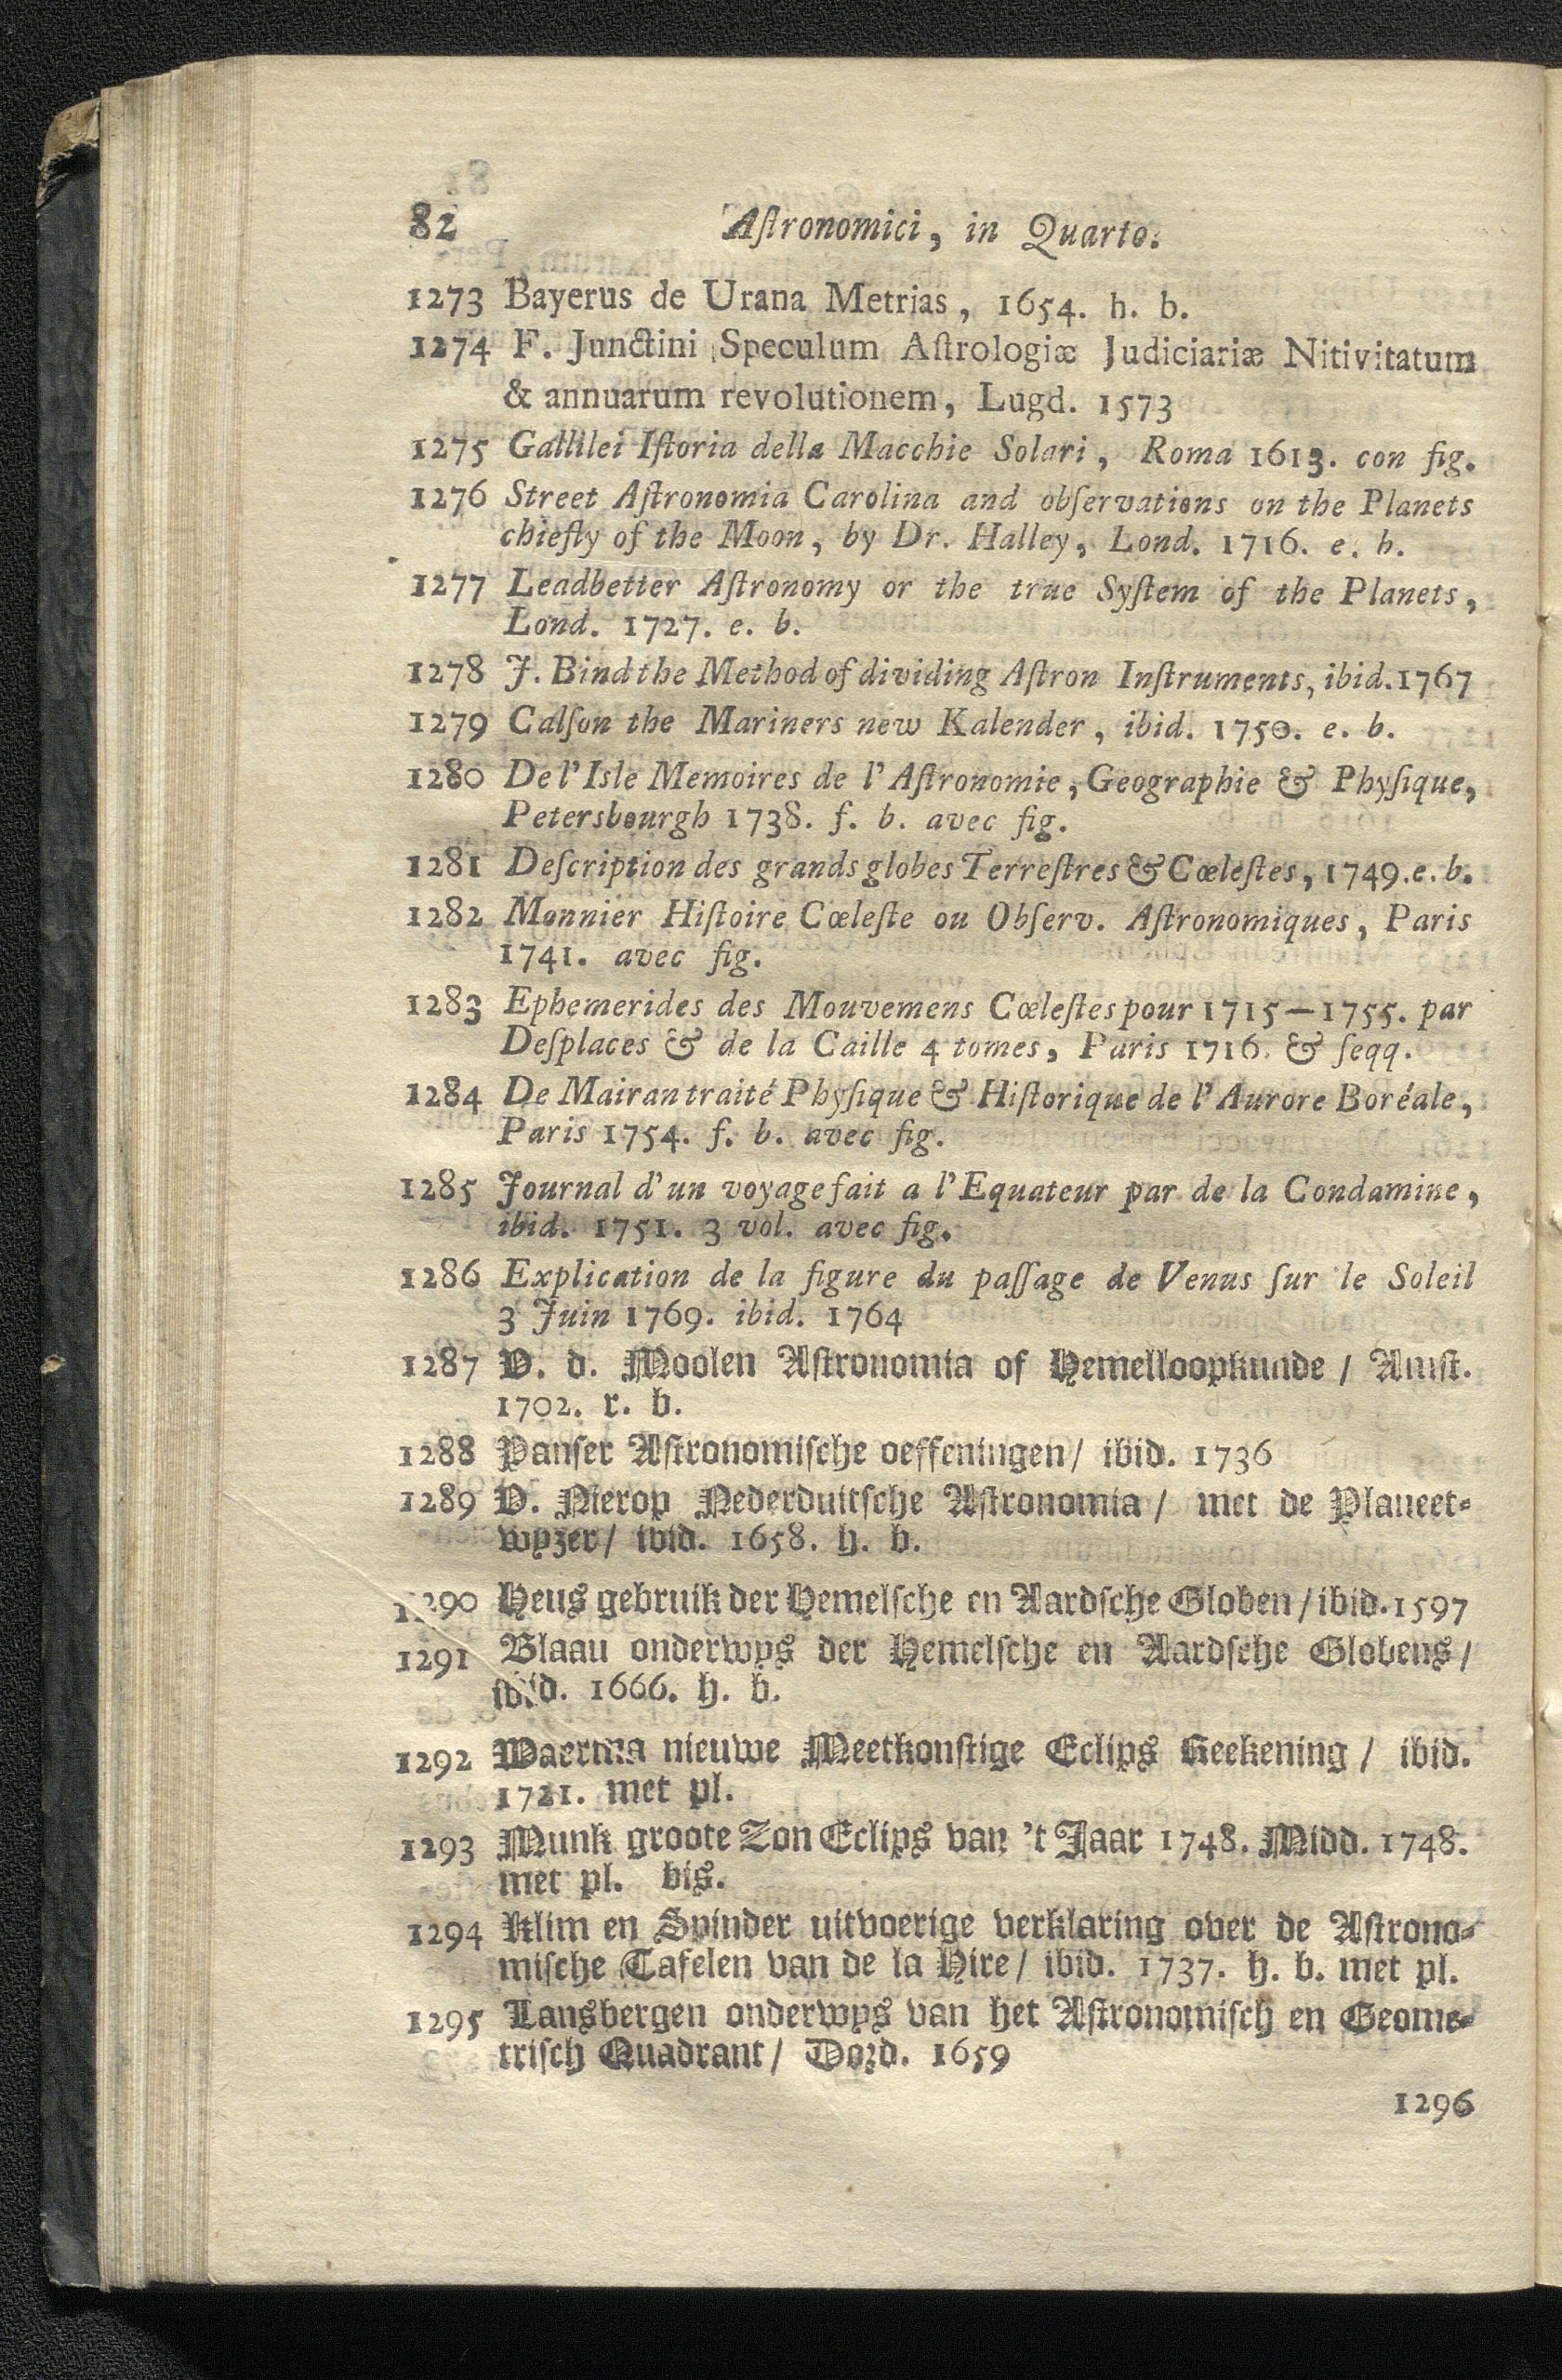 82 Aſtronomici, in Quarto.
1273 Bayerus de Urana Metrias, 1654. h. b.
1274 F. Junctini Speculum Aſtrologiæ Judiciariæ Nitivitatum
& annuarum revolutionem, Lugd. 1573
1275 Gallilei Iſtoria della Macchie Solari, Roma 1613. con fig.
1276 Street Aſtronomia Carolina and obſervations on the Planets
chiefly of the Moon, by Dr. Halley, Lond. 1716. e. b.
1277 Leadbetter Aſtronomy or the true Syſtem of the Planets,
Lond. 1727. e. b.
1278 J. Bind the Method of dividing Aſtron Inſtruments, ibid. 1767
1279 Calſon the Mariners new Kalender, ibid. 1750. e. b.
1280 De l'Isle Memoires de l'Aſtronomie, Geographie & Phyſique,
Petersbourgh 1738. f. b. avec fig.
1281 Deſcription des grands globes Terreſtres & Cœleſtes, 1749. e. b.
1282 Monnier Hiſtoire Cœleſte ou Obſerv. Aſtronomiques, Paris
1741. avec fig.
1283 Ephemerides des Mouvemens Cœleſtes pour 1715—1755. par
Deſplaces & de la Caille 4 tomes, Paris 1716. & ſeqq.
1284 De Mairan traité Phyſique & Hiſtorique de l'Aurore Boréale,
Paris 1754. f. b. avec fig.
1285 Journal d'un voyage fait a l'Equateur par de la Condamine,
ibid. 1751. 3 vol. avec fig.
1286 Explication de la figure du paſſage de Venus ſur le Soleil
3 Juin 1769. ibid. 1764
1287 D. d. Moolen Aſtronomia of Hemelloopkunde / Amſt.
1702. r. b.
1288 Panſer Aſtronomiſche oeffeningen / ibid. 1736
1289 D. Nierop Nederduitſche Aſtronomia / met de Planeet-
wyzer / ibid. 1658. h. b.
1290 Heus gebruik der Hemelſche en Aardſche Globen / ibid. 1597
1291 Blaau onderwys der Hemelſche en Aardſche Globens /
ibid. 1666. h. b.
1292 Waerma nieuwe Meetkonſtige Eclips Reekening / ibid.
1721. met pl.
1293 Munk groote Zon Eclips van 't Jaar 1748. Midd. 1748.
met pl. bis.
1294 Klim en Spinder uitvoerige verklaring over de Aſtrono-
miſche Tafelen van de la Hire / ibid. 1737. h. b. met pl.
1295 Lansbergen onderwys van het Aſtronomiſch en Geome-
triſch Quadrant / Dord. 1659
1296